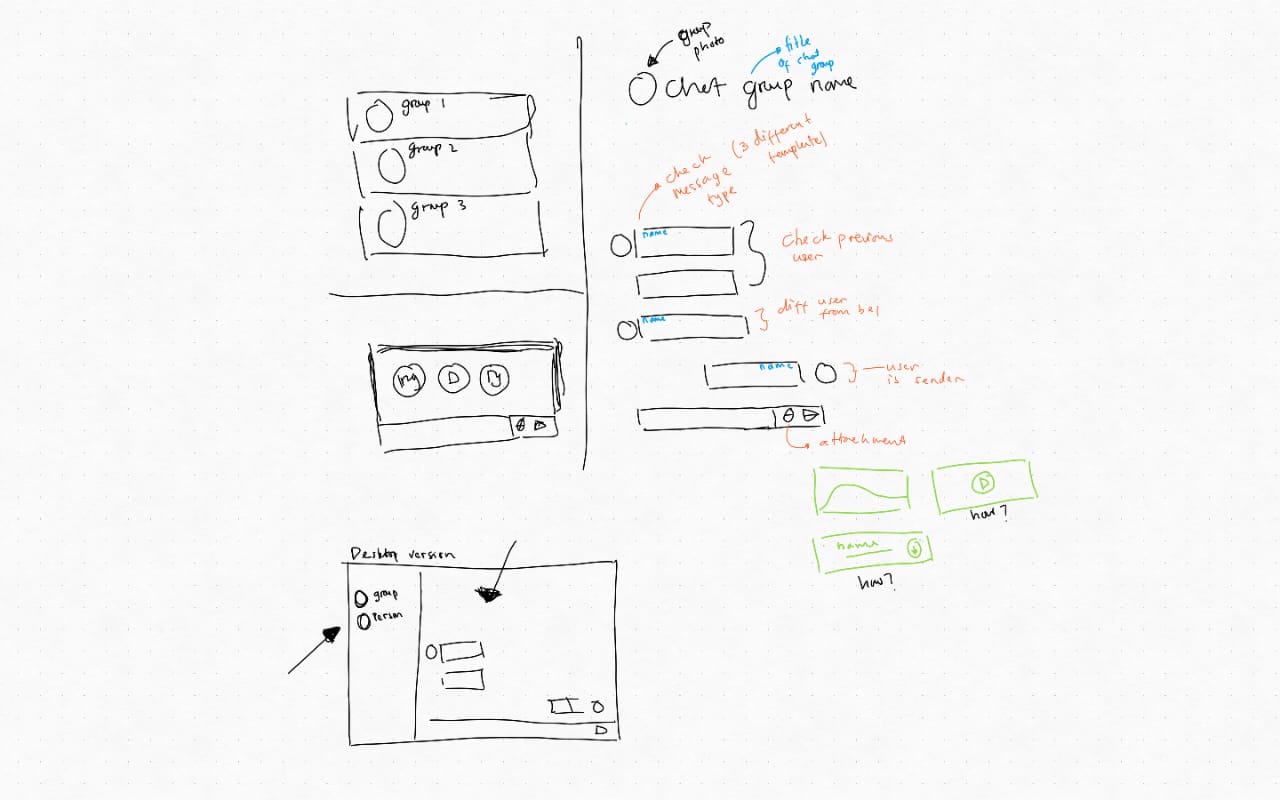 group 1
group 2
group 3
group
photo
title
of chat
group
Chat group name
check
message
type
(3 different
template)
name
Check previous
user
name
diff user
from bel
name
user
is sender
attachment
how?
name
how?
Desktop version
group
Person